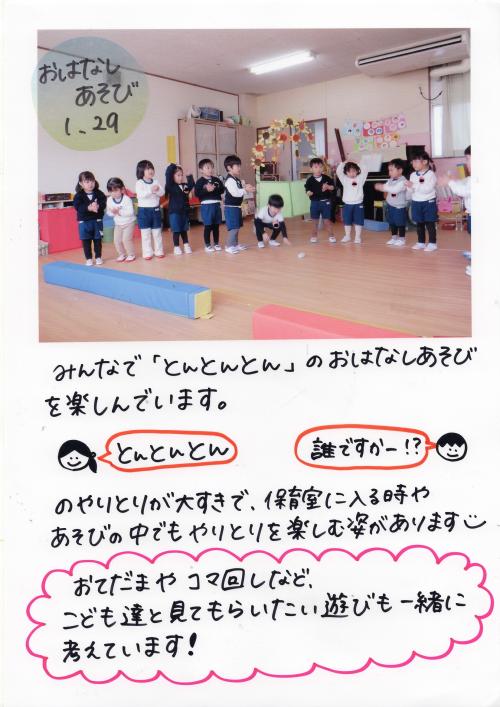 おはなし
あそび
1.29
みんなで「とんとんとん」のおはなしあそび
を楽しんでいます。
とんとんとん
誰ですかー!?
のやりとりが大すきで、保育室に入る時や
あそびの中でもやりとりを楽しむ姿があります
おてだまや コマ回しなど、
こども達と見てもらいたい遊びも一緒に
考えています!